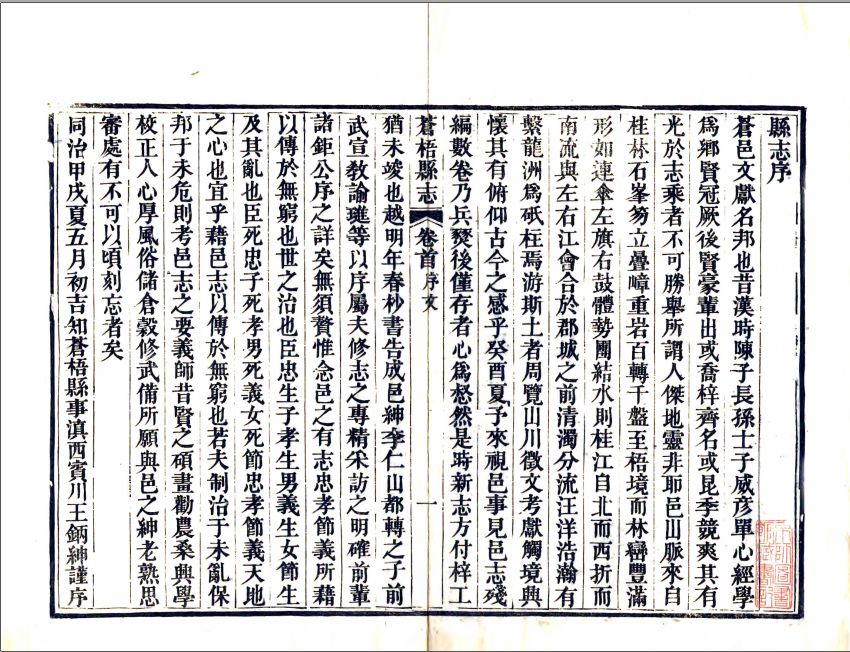 縣志序
蒼邑文獻名邦也昔漢時陳子長孫士子威彥單心經學
爲鄉賢冠厥後賢豪輩出或喬梓齊名或昆季競爽其有
光於志乘者不可勝舉所謂人傑地靈非耶邑山脈來自
桂林石峯芴立疊嶂重岩百轉千盤至梧境而林巒豐滿
形如連傘左旗右鼓體勢團結水則桂江自北而西折而
南流與左右江會合於郡城之前清濁分流汪洋浩瀚有
繫龍洲爲砥柱焉游斯土者周覽山川徵文考獻觸境興
懷其有俯仰古今之感乎癸酉夏予來視邑事見邑志殘
編數卷乃兵燹後僅存者心爲惄然是時新志方付梓工
蒼梧縣志
卷首
序文
一
猶未竣也越明年春杪書告成邑紳李仁山都轉之子前
武宣敎諭璡等以序屬夫修志之專精采訪之明確前輩
諸鉅公序之詳矣無須贅惟念邑之有志忠孝節義所藉
以傳於無窮也世之治也臣忠生子孝生男義生女節生
及其亂也臣死忠子死孝男死義女死節忠孝節義天地
之心也宜乎藉邑志以傳於無窮也若夫制治于未亂保
邦于未危則考邑志之要義師昔賢之碩畫勸農桑興學
校正人心厚風俗儲倉穀修武備所願與邑之紳老熟思
審處有不可以頃刻忘者矣
同治甲戌夏五月初吉知蒼梧縣事滇西賓川王鈵紳謹序